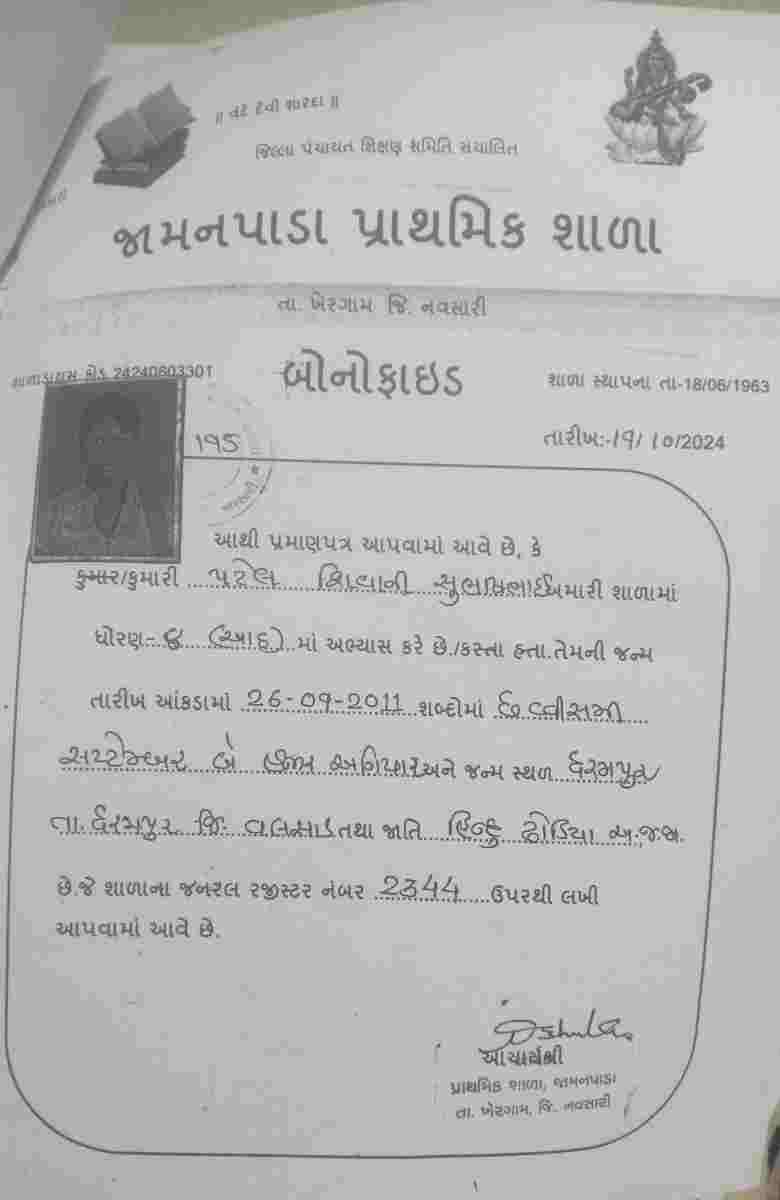 ॥ વંદે દેવી શારદા ॥
જિલ્લા પંચાયત શિક્ષણ સમિતિ સંચાલિત
જામનપાડા પ્રાથમિક શાળા
તા. ખેરગામ જિ. નવસારી
શાળાડાયસ કોડ 24240603301
બોનોફાઇડ
શાળા સ્થાપના તા-18/06/1963
195
તારીખ:-19/10/2024
આથી પ્રમાણપત્ર આપવામાં આવે છે, કે
કુમાર/કુમારી પટેલ સુલભભાઈ અમારી શાળામાં
ધોરણ-8 (આઠ) માં અભ્યાસ કરે છે./કરતા હતા.તેમની જન્મ
તારીખ આંકડામાં 26-09-2011 શબ્દોમાં છવ્વીસમી
સપ્ટેમ્બર બે હજાર અગિયાર અને જન્મ સ્થળ ધરમપુર
તા. ધરમપુર જિ. વલસાડ તથા જાતિ હિન્દુ ઢોડિયા અ.જ.જા.
છે.જે શાળાના જનરલ રજીસ્ટર નંબર 2344 ઉપરથી લખી
આપવામાં આવે છે.
આચાર્યશ્રી
પ્રાથમિક શાળા, જામનપાડા
તા. ખેરગામ, જિ. નવસારી